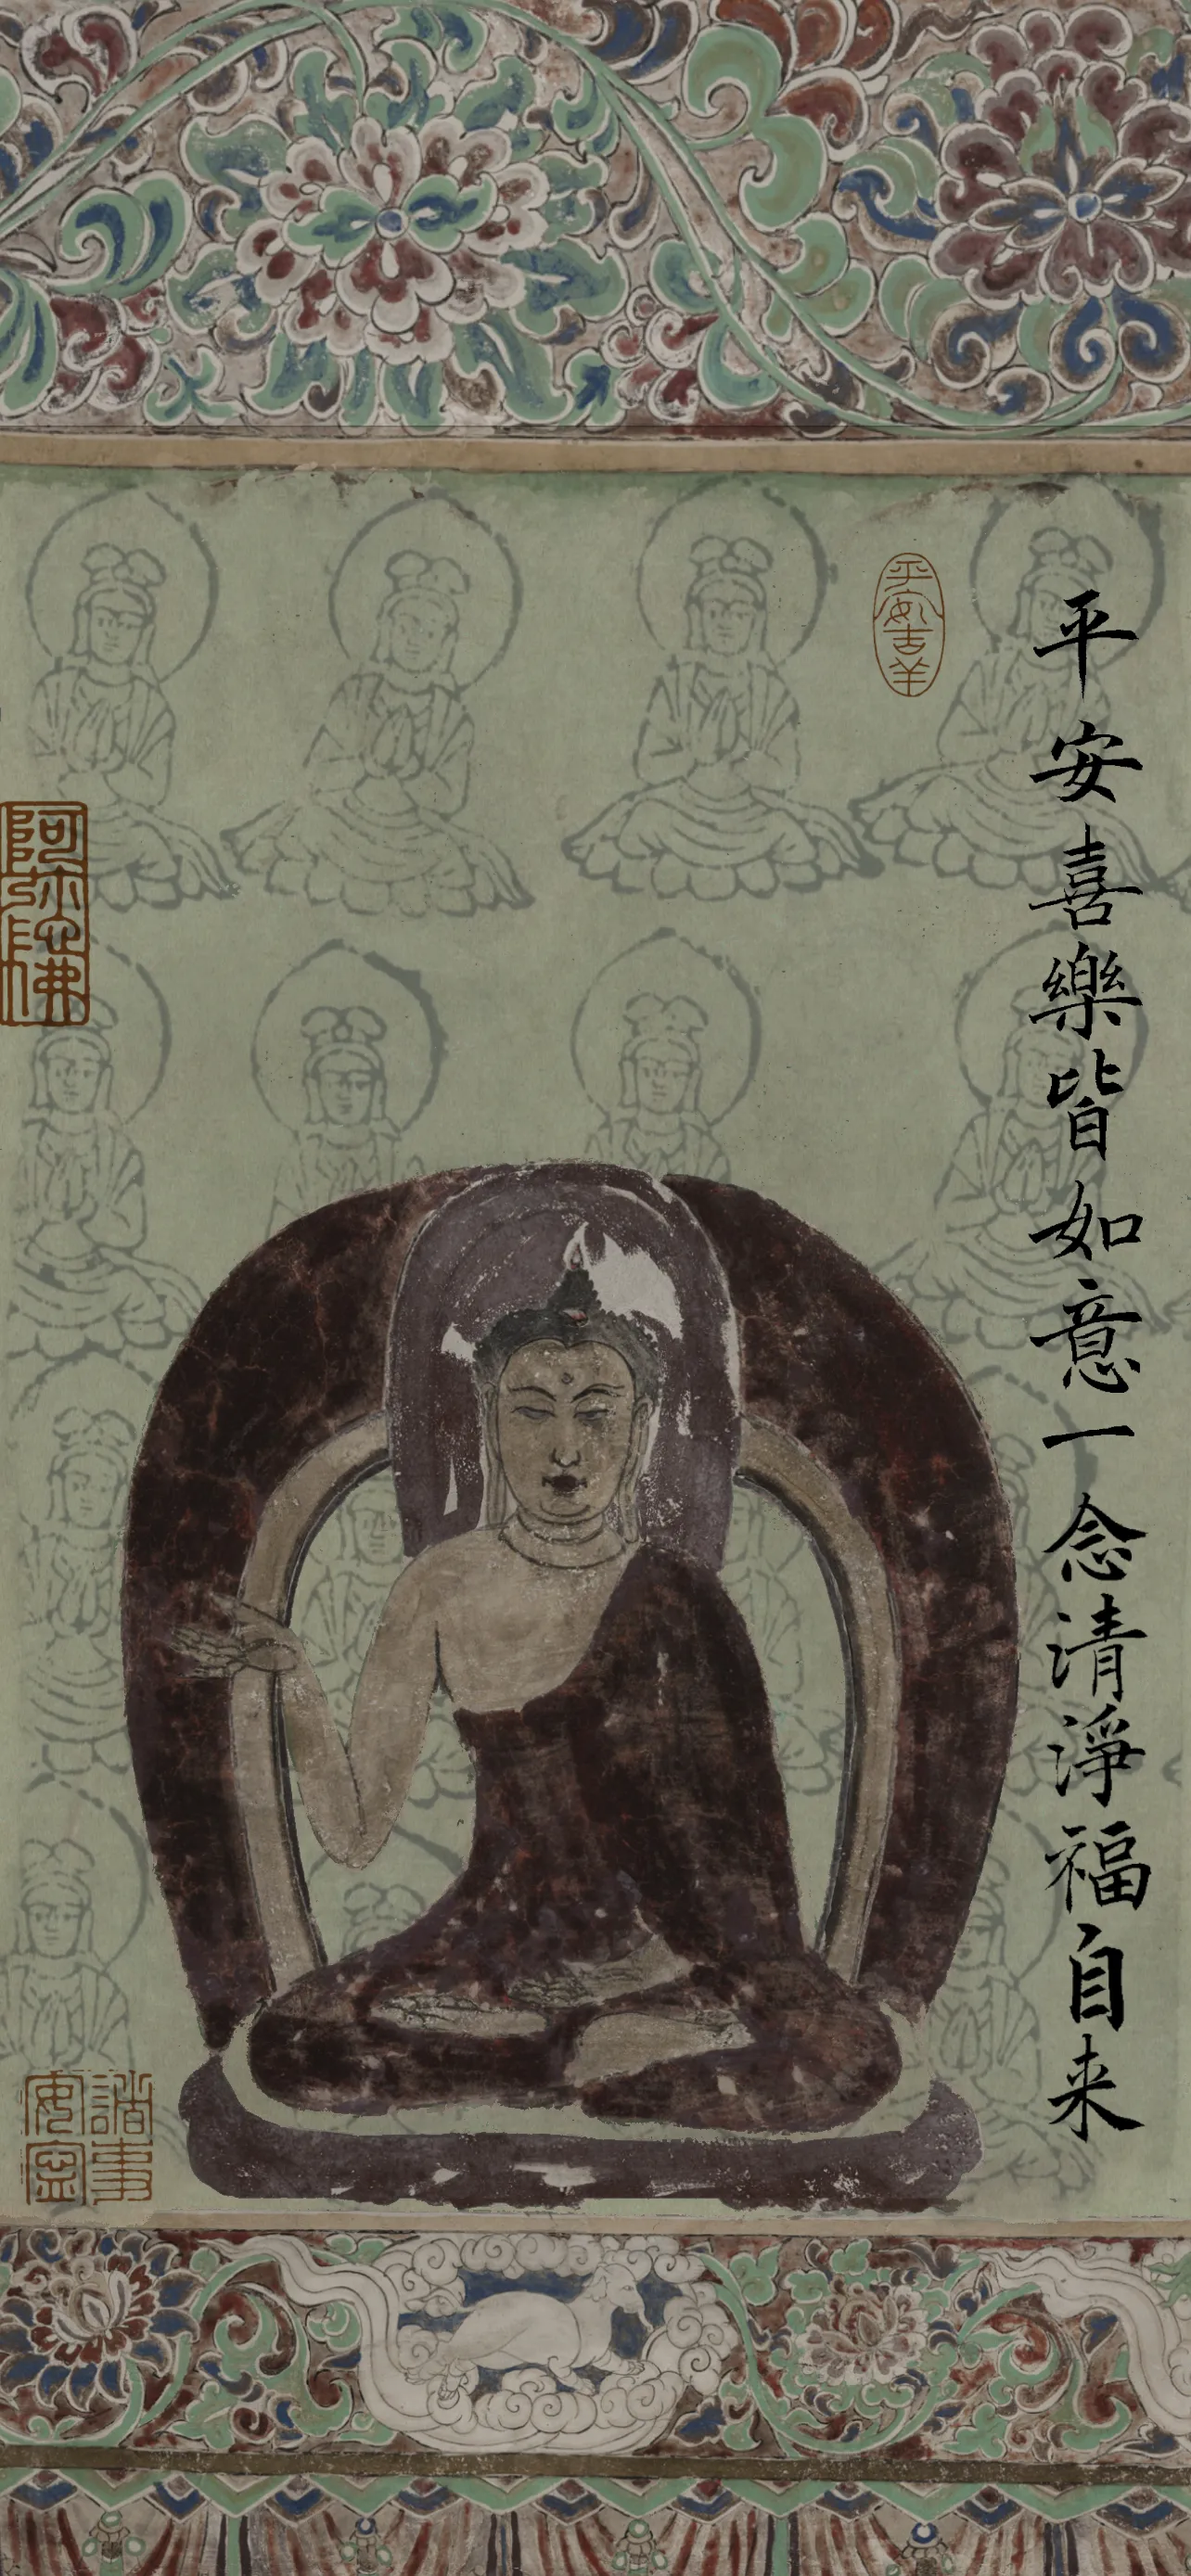 平安喜樂皆如意一念清淨福自来
平安吉羊
阿弥陀佛
諸事
安寧